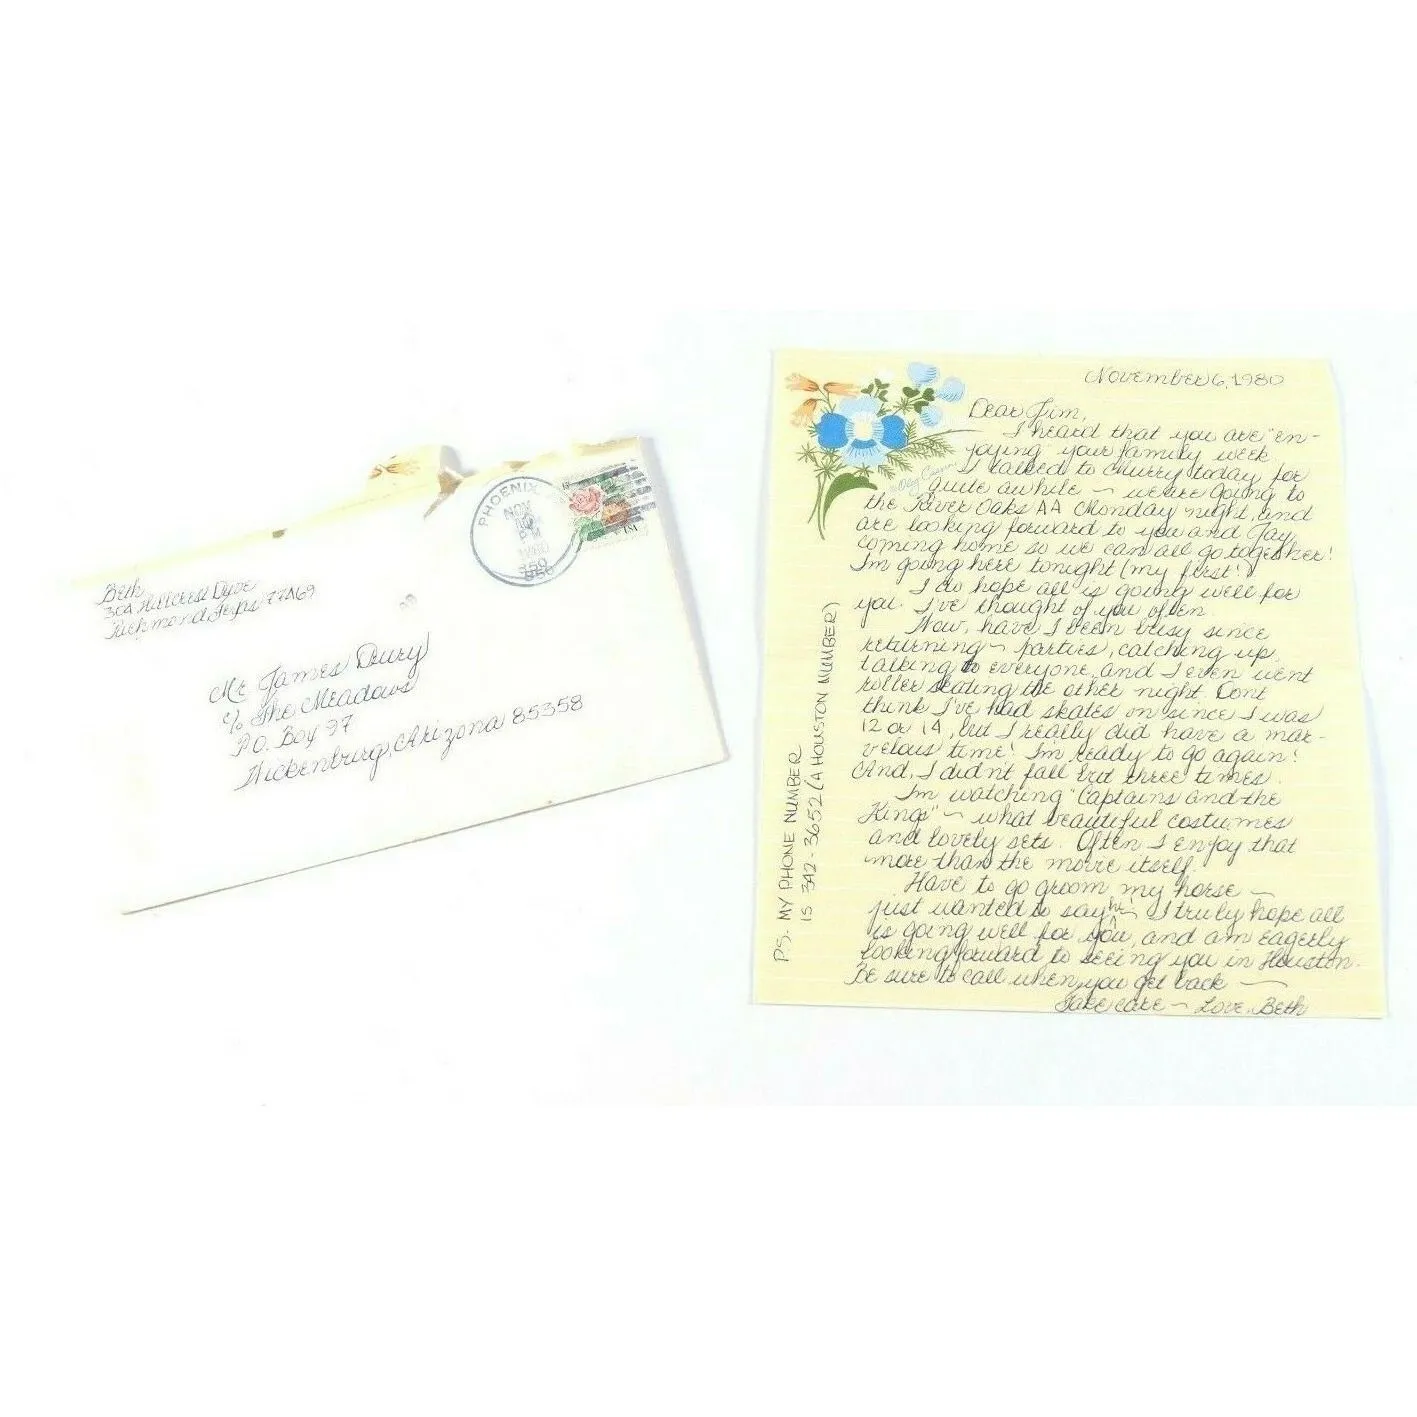 Beth
304 Hillcrest Drive
Richmond, Texas 77469
PHOENIX
NOV
PM
1980
850
Mr. James Drury
c/o The Meadows
P.O. Box 97
Wickenburg, Arizona 85358
November 6, 1980
Dear Jim,
I heard that you are "en-
joying" your family week.
I talked to Murry today for
quite awhile ~ we are going to
the River Oaks AA Monday night, and
are looking forward to you and Jay,
coming home so we can all go together!
I'm going here tonight (my first!)
I do hope all is going well for
you. I've thought of you often.
Now, have I been busy since
returning ~ parties, catching up,
talking to everyone, and I even went
roller skating the other night. Don't
think I've had skates on since I was
12 or 14, but I really did have a mar-
velous time! I'm ready to go again!
And, I didn't fall but three times.
I'm watching "Captains and the
Kings" ~ what beautiful costumes
and lovely sets. Often I enjoy that
more than the movie itself.
Have to go groom my horse ~
just wanted to say hi. I truly hope all
is going well for you, and am eagerly
looking forward to seeing you in Houston.
Be sure to call when you get back ~
Take care ~ Love, Beth
P.S. MY PHONE NUMBER
IS 342-3652 (A HOUSTON NUMBER)